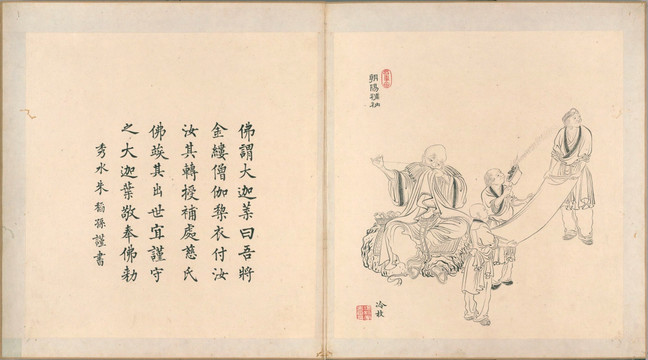 佛謂大迦葉曰吾將
金縷僧伽棃衣付汝
汝其轉授補處慈氏
佛竢其出世宜謹守
之大迦葉敬奉佛勅
秀水朱稻孫謹書
朝陽補衲
冷枚